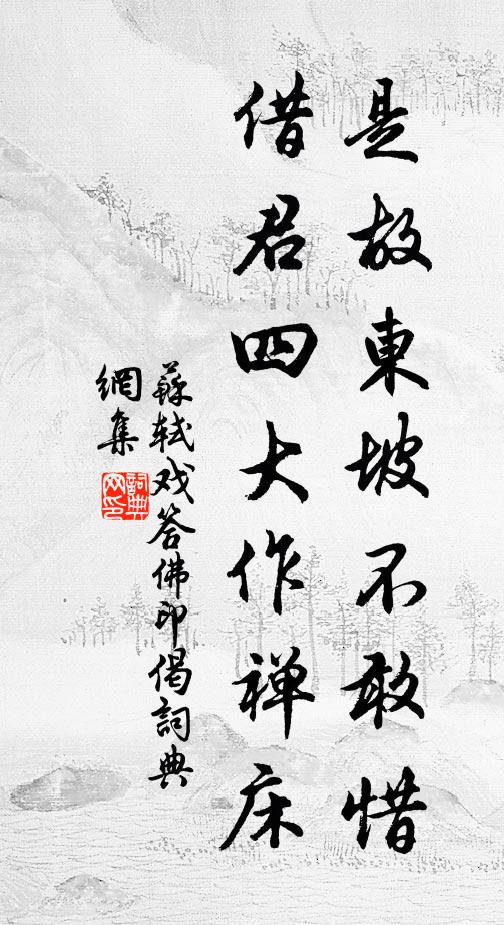 是故東坡不敢惜
借君四大作禅床
蘇軾戏答佛印偈詞典
網集
詞典
网印